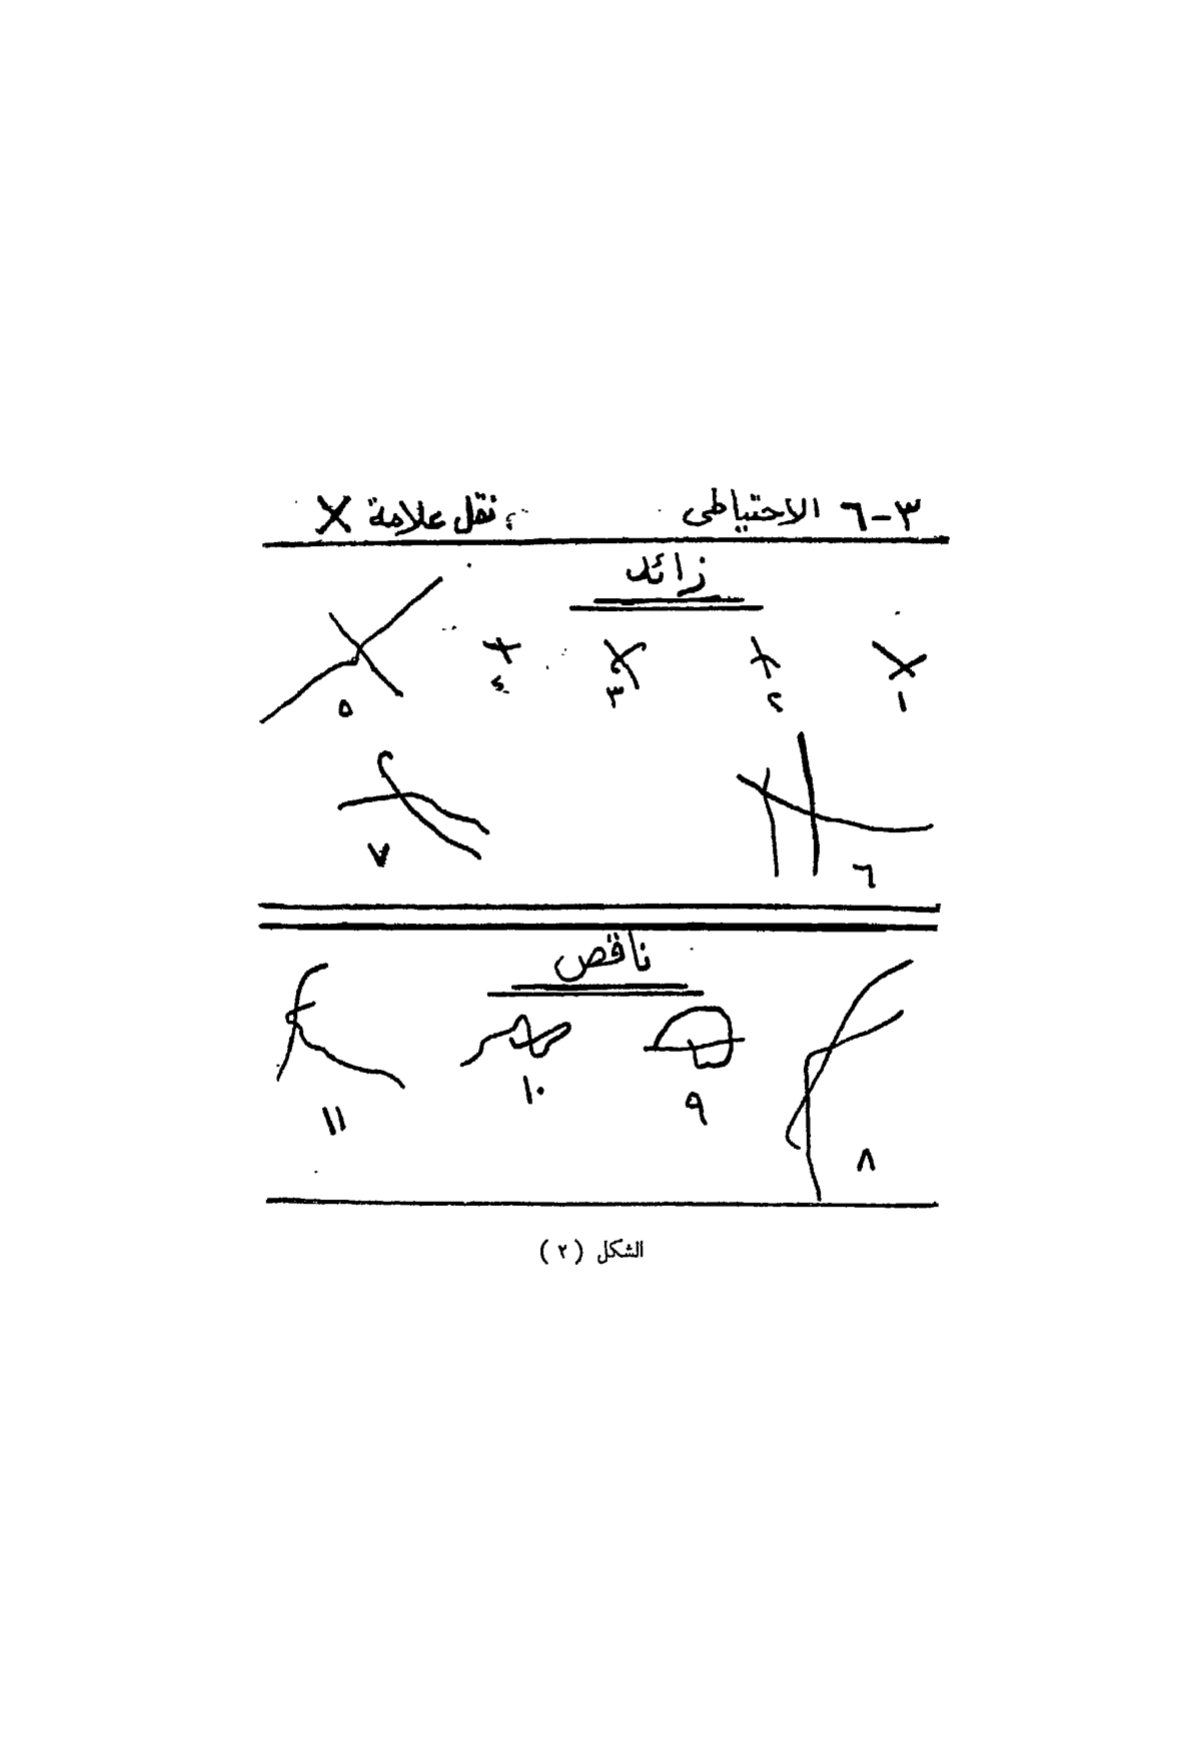 ٣-٦ الاحتياطى نقل علامة X
زائد
١ ٢ ٣ ٤ ٥
٦ ٧
ناقص
٨ ٩ ١٠ ١١
الشكل (٢)